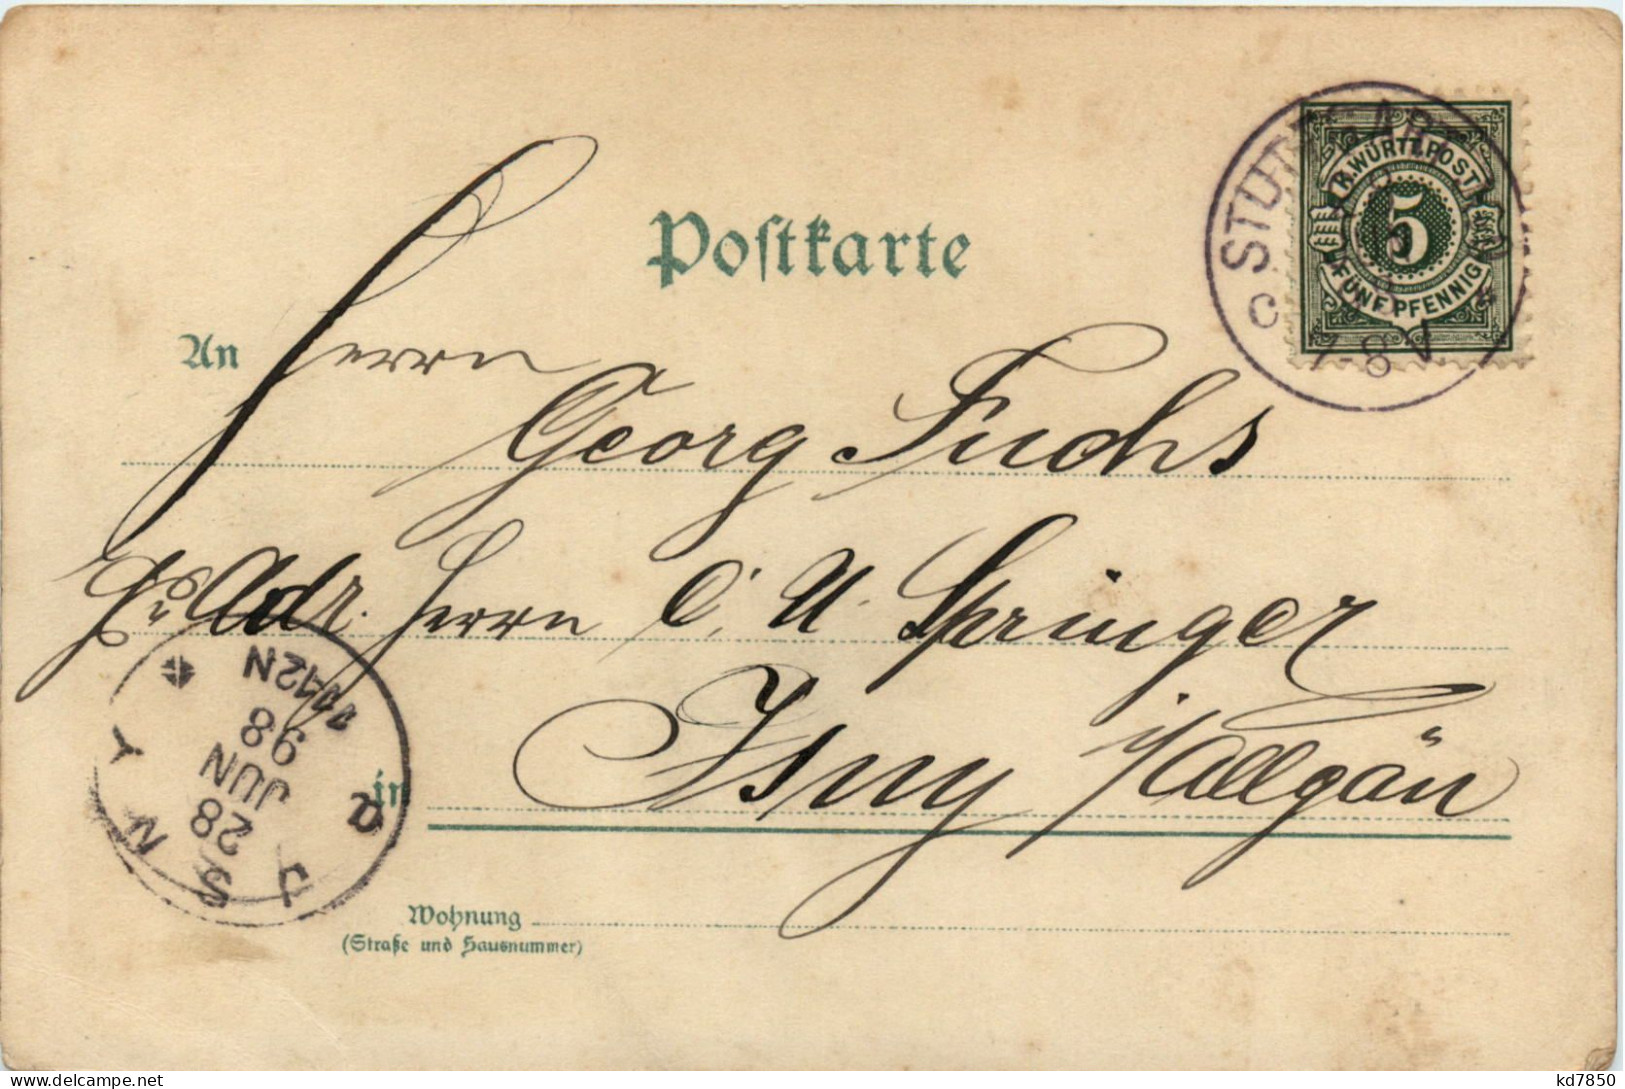 Postkarte
K. WÜRTT. POST
5
FÜNF PFENNIG
STUTTGART
C
7-8 V.
An Herrn
Georg Fuchs
Adr. Herrn C. U. Springer
in Isny i/Allgäu
Wohnung
(Straße und Hausnummer)
ISNY
28
JUN
98
11-12N
kd7850